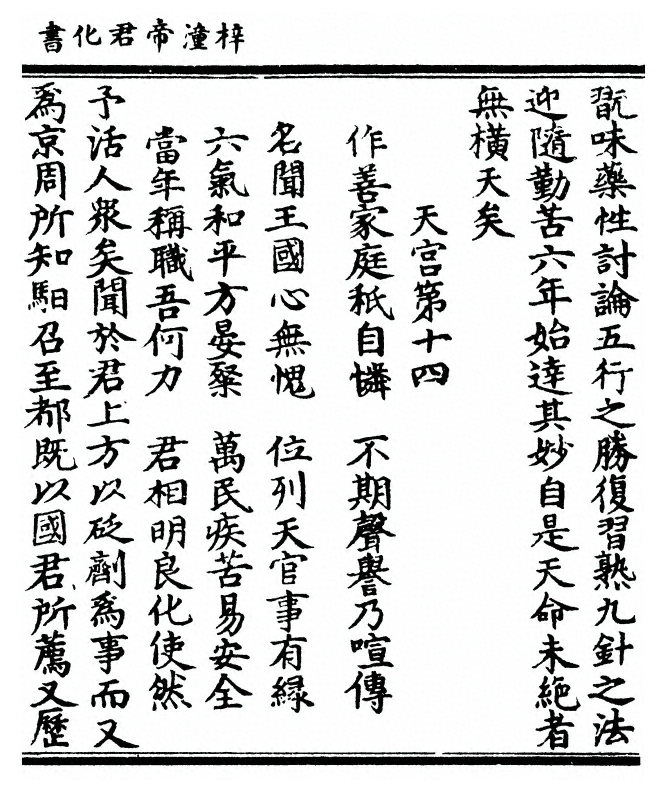 梓潼帝君化書
翫味藥性討論五行之勝復習熟九針之法
迎隨勤苦六年始達其妙自是天命未絶者
無橫夭矣
天宮第十四
作善家庭秖自憐　不期聲譽乃喧傳
名聞王國心無愧　位列天官事有緣
六氣和平方晏粲　萬民疾苦易安全
當年稱職吾何力　君相明良化使然
予活人衆矣聞於君上方以砭劑爲事而又
爲京周所知馹召至都既以國君所薦又歷